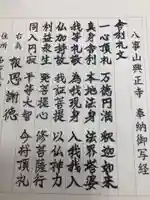 八事山興正寺　奉納御写経
舎利礼文
一心頂礼　万徳円満　釈迦如来
真身舎利　本地法身　法界塔婆
我等礼敬　為我現身　入我我入
仏加持故　我証菩提　以仏神力
利益衆生　発菩提心　修菩薩行
同入円寂　平等大智　今将頂礼
右為
住所